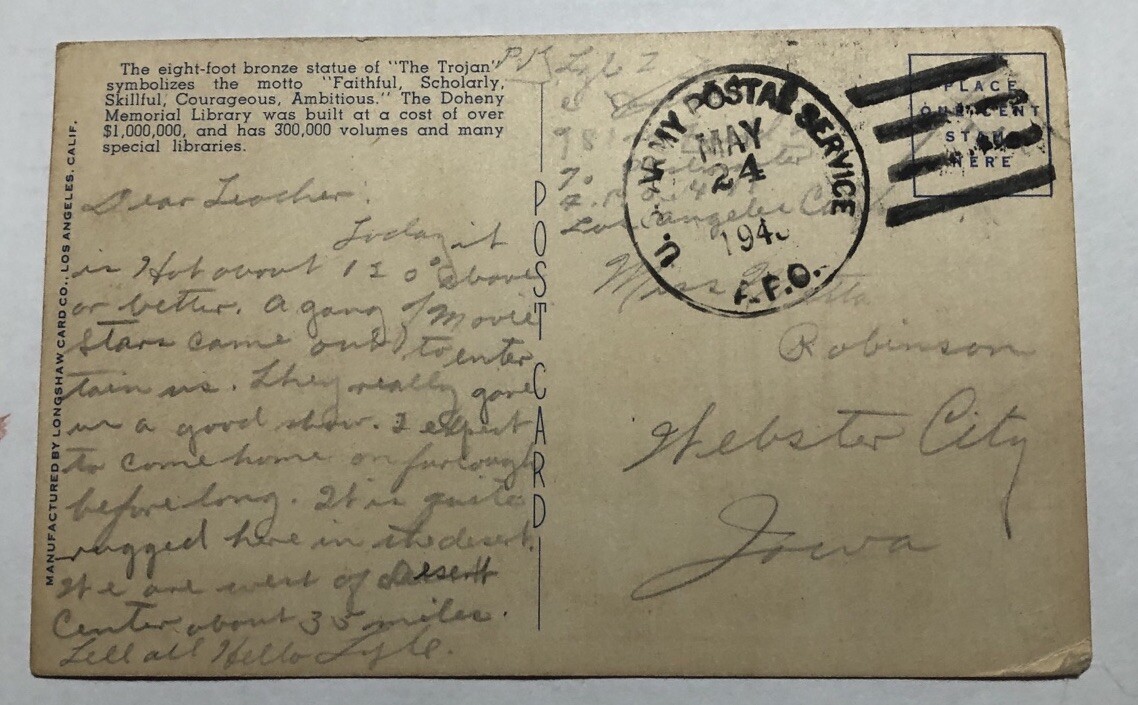 The eight-foot bronze statue of "The Trojan"
symbolizes the motto "Faithful, Scholarly,
Skillful, Courageous, Ambitious." The Doheny
Memorial Library was built at a cost of over
$1,000,000, and has 300,000 volumes and many
special libraries.
MANUFACTURED BY LONGSHAW CARD CO., LOS ANGELES, CALIF.
Dear Teacher.
Today it
is Hot about 120° above
or better. A gang of Movie
Stars came out to enter
tain us. They really gave
us a good show. I expect
to come home on furlough
before long. It is quite
rugged here in the desert.
We are west of desert
Center about 35 miles.
Tell all Hello Lyle.
POST CARD
Pvt Lyle
981
Los Angeles Calif
U.S. ARMY POSTAL SERVICE
MAY
24
194
A.P.O.
PLACE
ONE CENT
STAMP
HERE
Miss
Robinson
Webster City
Iowa